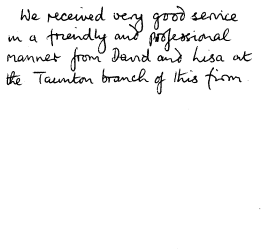 We received very good service
in a friendly and professional
manner from David and Lisa at
the Taunton branch of this firm.